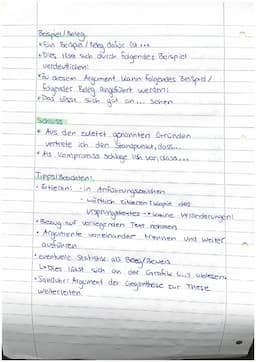 Beispiel / Beleg
• Ein Beispiel / Beleg dafür ist...
• Dies lässt sich durch folgendes Beispiel
verdeutlichen:
• Zu diesem Argument kann folgendes Beispiel /
folgender Beleg angeführt werden:
• Das lässt sich gut an ... sehen
Schluss
• Aus den zuletzt genannten Gründen
vertrete ich den Standpunkt, dass...
• Als Kompromiss schlage ich vor, dass...
Tipps / Beachten!:
• Zitieren: - in Anführungszeichen
- wörtlich zitieren (Kopie des
Ursprungstextes → keine Veränderungen!
• Bezug auf vorliegenden Text nehmen
• Argumente voneinander trennen und weiter
ausführen
• eventuelle Statistik als Beleg/Beweis
↳ Dies lässt sich an der Grafik (...) ablesen.
• Sanduhr: Argument der Gegenthese zur These
weiterleiten